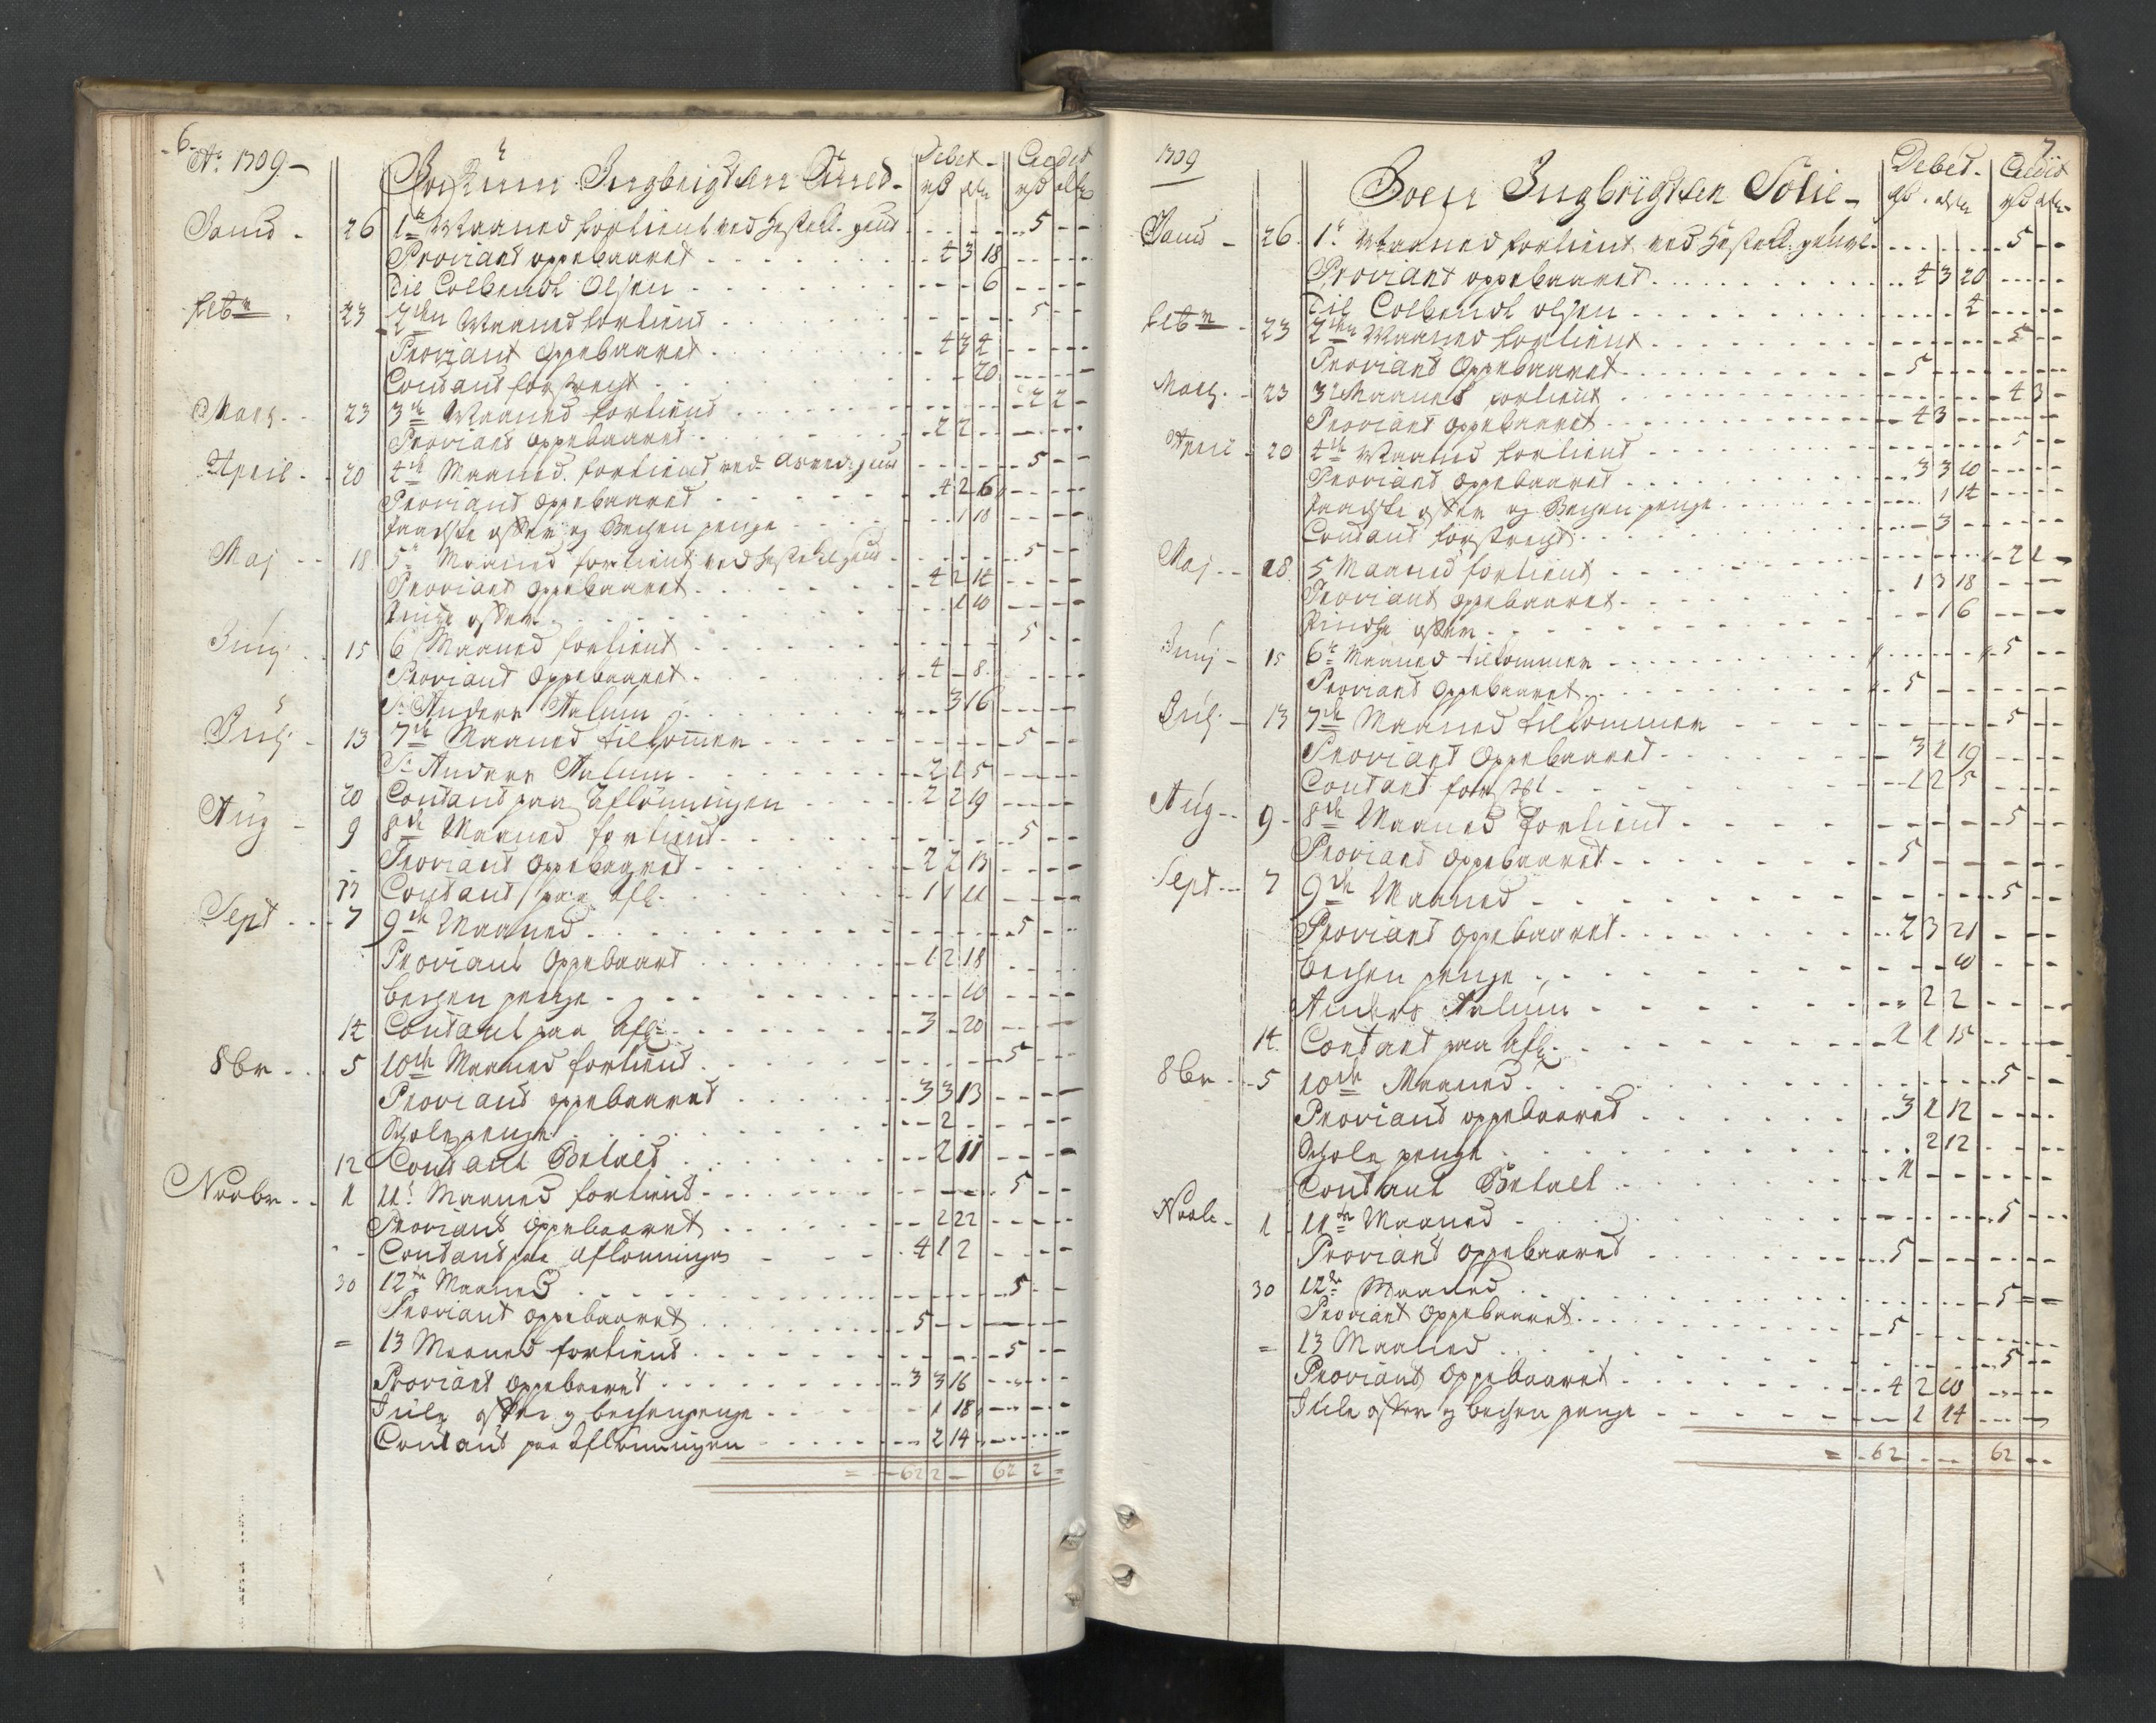 6
Ao. 1709 –
Ingbrigtsen Debet – Credit
Janu – 26 1te Maaned fortient ved – – – 5 – –
Proviant oppebaaret – 4 3 18 – – –
Til Colbenor Olsen – – – 6 – – –
Febr. 23 2den Maaned fortient – – – 5 – –
Proviant Oppebaaret – 4 3 4 – – –
Contant forstragt – – 20 – – –
Marti – 23 3de Maaned fortient – – – 2 2 –
Proviant oppebaaret – 2 2 – – – –
April – 20 4de Maaned fortient ved – – – 5 – –
Proviant oppebaaret – 4 2 6 – – –
faaste osten og Becken penge – – 1 18 – – –
Maj – 18 5te Maaned fortient ved – – – 5 – –
Proviant oppebaaret – 4 2 14 – – –
osten – – 1 10 – – –
Junj – 15 6 Maaned fortient – – – 5 – –
Proviant Oppebaaret – 4 – 8 – – –
Sr. Anders Aalum – – 3 16 – – –
Julj – 13 7de Maaned tilkommer – – – 5 – –
Sr. Anders Aalum – 2 1 5 – – –
20 Contant paa Aflönningen – 2 2 19 – – –
Aug – 9 8de Maaned fortient – – – 5 – –
Proviant Oppebaaret – 2 2 13 – – –
Contant paa Afl. – 1 1 11 – – –
Sept – 7 9de Maaned – – – 5 – –
Proviant Oppebaaret – 1 2 18 – – –
becken penge – – – 10 – – –
14 Contant paa Afl. – 3 – 20 – – –
8br – 5 10de Maaned fortient – – – 5 – –
Proviant oppebaaret – 3 3 13 – – –
Schole penge – – 2 – – – –
12 Contant Betalt – – 2 11 – – –
Novbr – 1 11te Maaned fortient – – – 5 – –
Proviant oppebaaret – – 2 22 – – –
Contant paa Aflönningen – 4 1 2 – – –
30 12te Maaned – – – 5 – –
Proviant oppebaaret – 5 – – – – –
= 13 Maaned fortient – – – 5 – –
Proviant oppebaaret – 3 3 16 – – –
Jule osten og beckenpenge – – 1 18 – – –
Contant paa Aflönningen – – 2 14 – – –
= – 62 2 – 62 2 =
1709 7
Ingbrigtsen Solie – Debet – Credit
Janu – 26 1te Maaned fortient ved – – – 5 – –
Proviant oppebaaret – 4 3 20 – – –
Til Colbenor olsen – – – 4 – – –
Febr. – 23 2den Maaned fortient – – – 5 – –
Proviant Oppebaaret – 5 – – – – –
Marti – 23 3de Maaned fortient – – – 4 3 –
Proviant oppebaaret – 4 3 – – – –
April – 20 4de Maaned fortient – – – 5 – –
Proviant oppebaaret – 3 3 10 – – –
faaste osten og Becken penge – – 1 14 – – –
Contant forstragt – – 3 – – – –
Maj – 18 5 Maaned fortient – – – 2 1 –
Proviant oppebaaret – 1 3 18 – – –
osten – – 1 6 – – –
Junj – 15 6te Maaned tilkommer – – – 5 – –
Proviant Oppebaaret – 5 – – – – –
Julj – 13 7de Maaned tilkommer – – – 5 – –
Proviant Oppebaaret – 3 1 19 – – –
Contant – 1 2 5 – – –
Aug – 9 – 8de Maaned fortient – – – 5 – –
Proviant oppebaaret – 5 – – – – –
Sept – 7 9de Maaned – – – 5 – –
Proviant oppebaaret – 2 3 21 – – –
becken penge – – – 10 – – –
Anders Aalum – – 2 2 – – –
14 Contant paa Afl. – 1 1 15 – – –
8br – 5 10de Maaned – – – 5 – –
Proviant oppebaaret – 3 1 12 – – –
Schole penge – – 2 12 – – –
Contant Betalt – 1 – – – – –
Novbr – 1 11te Maaned – – – 5 – –
Proviant oppebaaret – 5 – – – – –
30 12te Maaned – – – 5 = =
Proviant Oppebaaret – 5 – – – – –
= 13 Maaned – – – 5 – –
Proviant oppebaaret – 4 2 10 – – –
Jule osten og becken penge – – 1 14 – – –
= 62 – – 62 – –